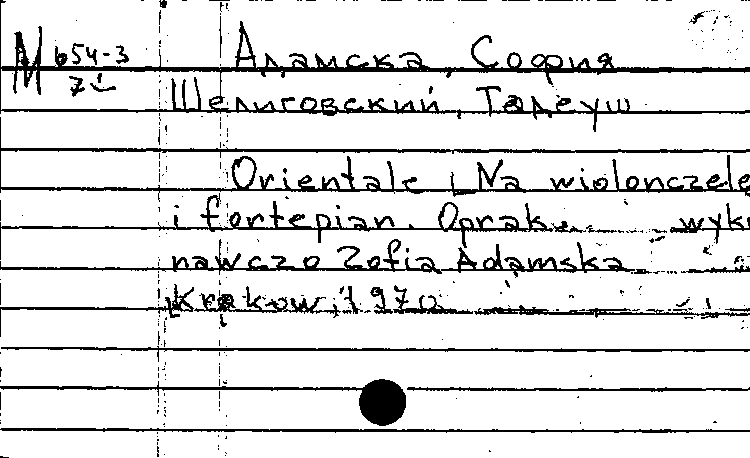 М 654-3
7
Адамска, София
Шелиговский, Тадеуш
Orientale [Na wiolonczelę
i fortepian. Oprak. wyko
nawczo Zofia Adamska
Krakow, 1970